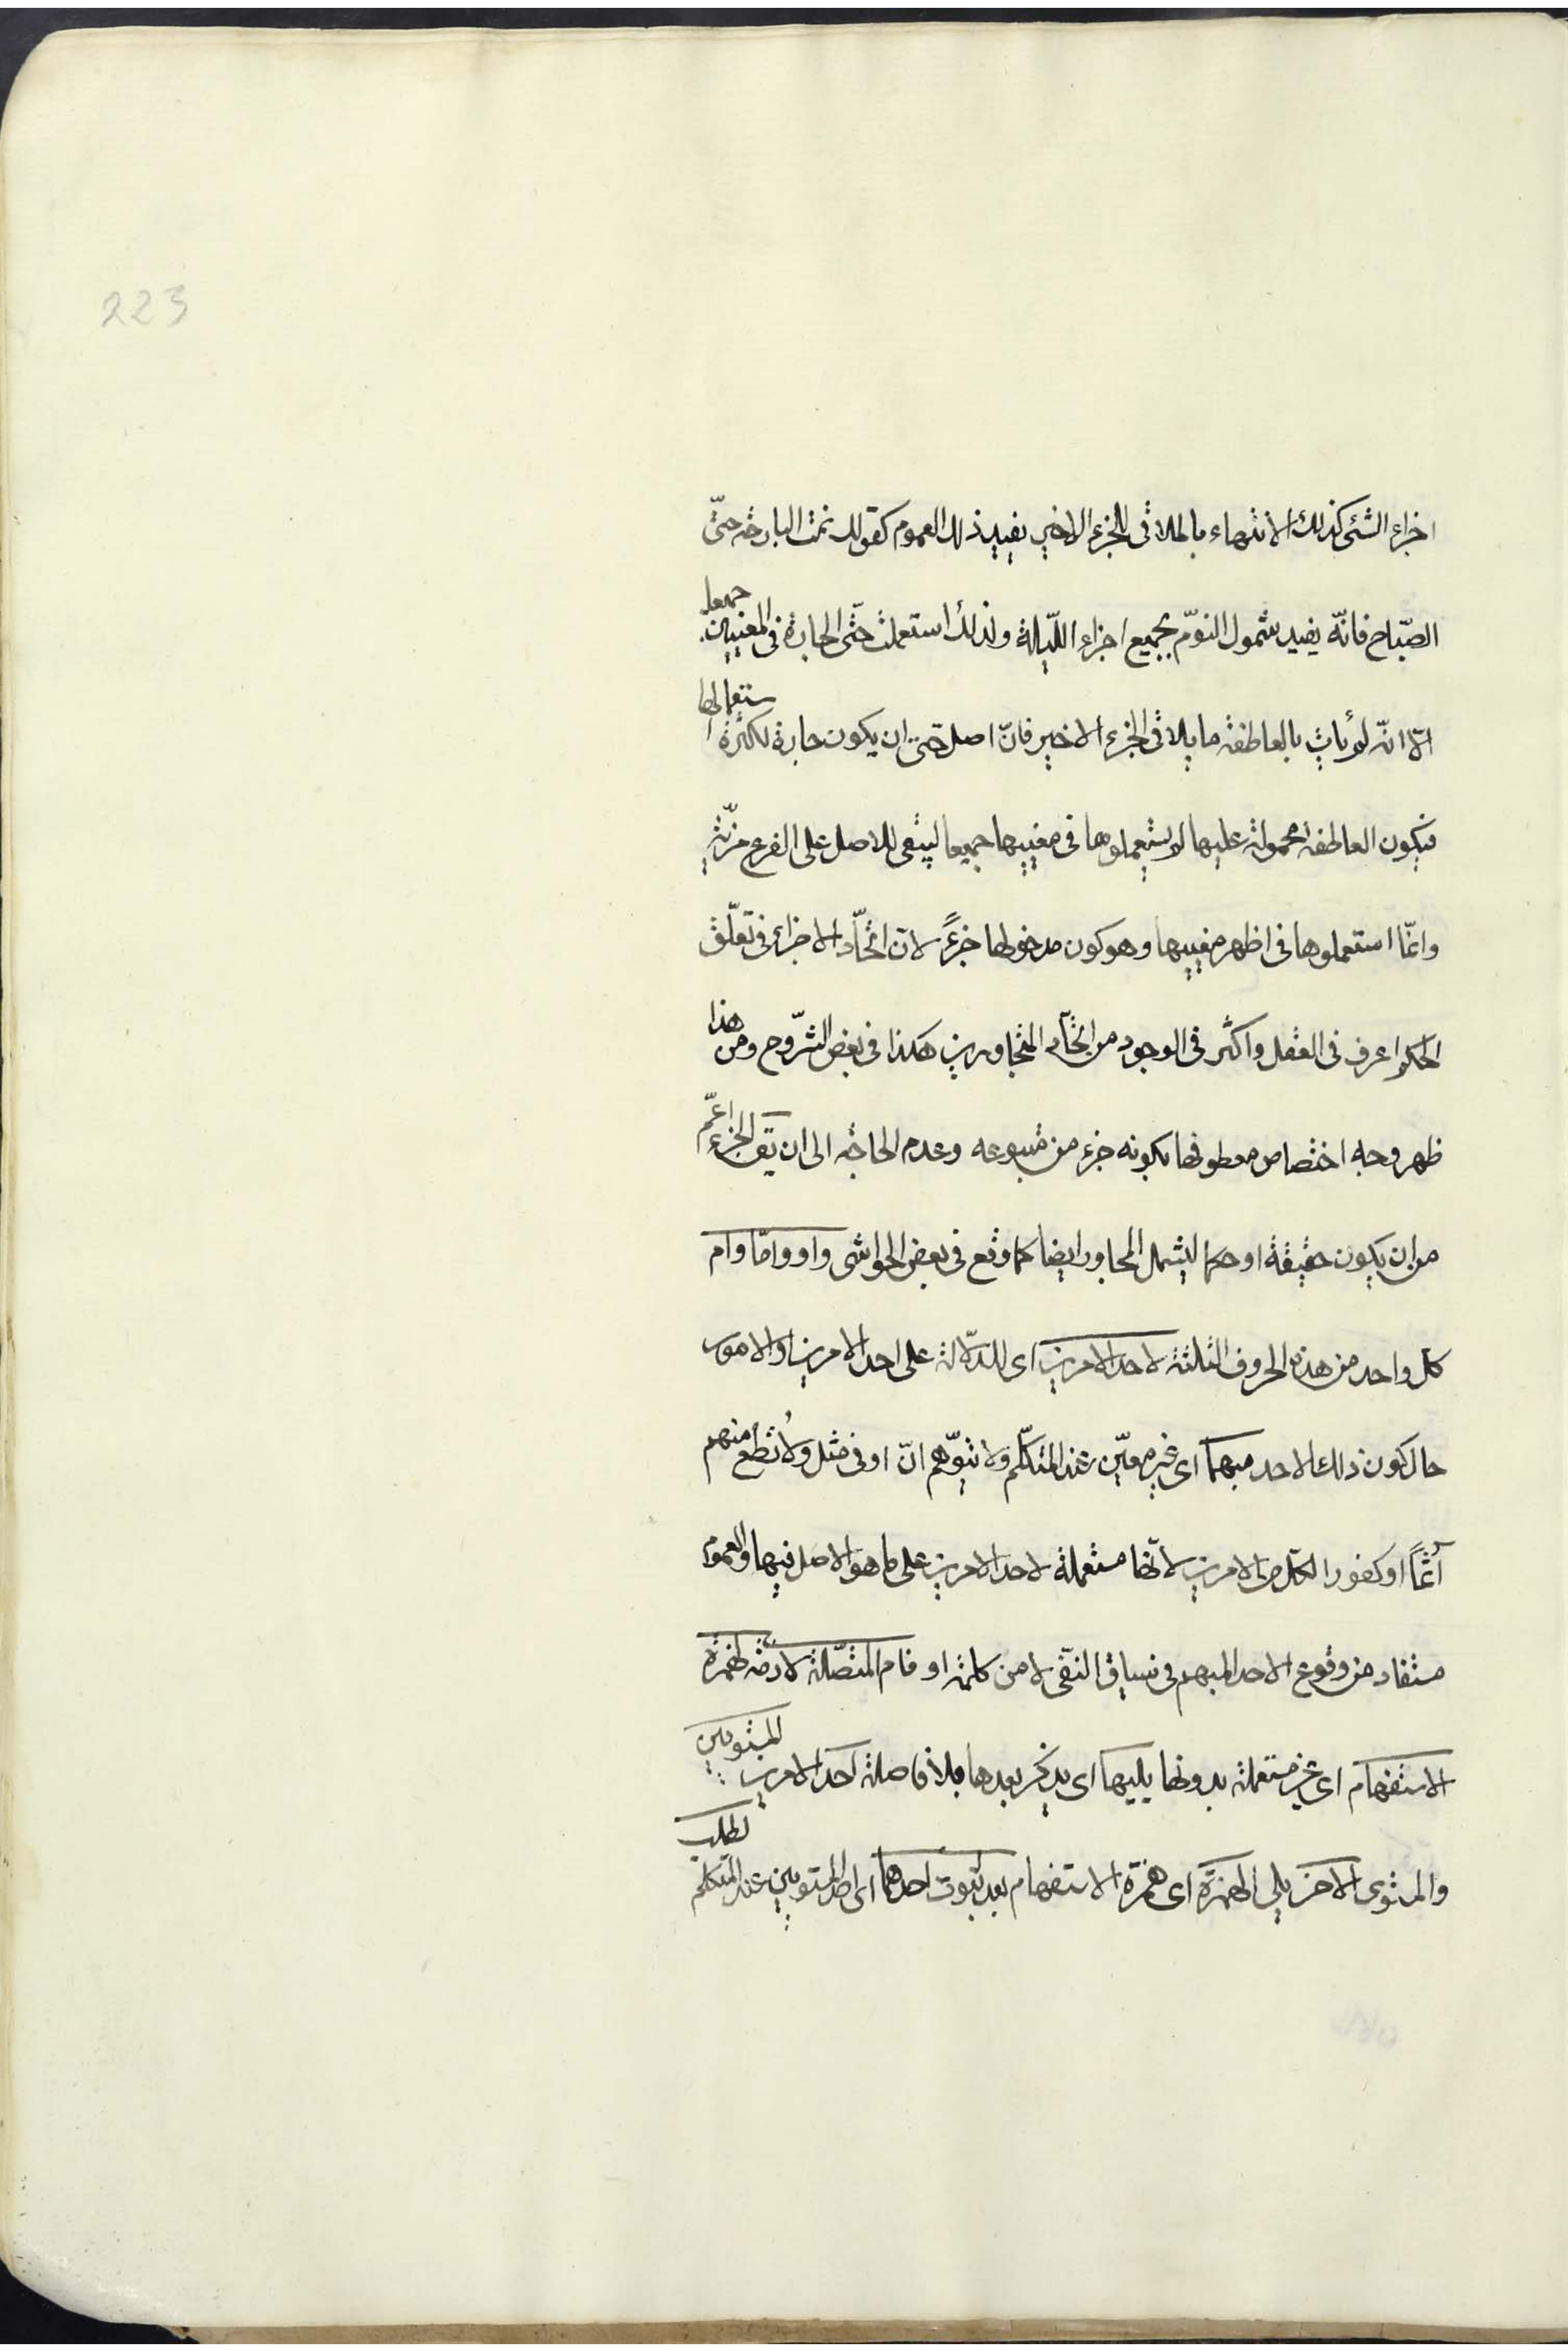 223
اجزاء الشئ كذلك الانتهاء بالملاقى للجزء الاخير يفيد ذلك العموم كقولك نمت البارحة حتّى
الصّباح فانّه يفيد شمول النوّم بجميع اجزاء اللّيلة ولذلك استعملت حتّى الجارة فى المعنيين جميعا
الّا انّه لم يأت بالعاطفة ما يلاقى الجزء الاخير فانّ اصل حتّى ان يكون جارة لكثرة استعمالها
فيكون العاطفة محمولة عليها لم يستعملوها فى معنييها جميعا ليبقى للاصل على الفرع مزيّة
وانّما استعملوها فى اظهر معنييها وهو كون مدخولها جزءً لانّ اتّحاد الاجزاء فى تعلّق
الحكم اعرف فى العقل واكثر فى الوجود من اتّحاد المتجاورين هكذا فى بعض الشّروح ومن هذا
ظهر وجه اختصاص معطوفها بكونه جزء من متبوعه وعدم الحاجة الى ان يق الجزء اعمّ
من ان يكون حقيقة او حكما ليشمل المجاور ايضا كما وقع فى بعض الحواشى واو وامّا وام
كل واحد من هذه الحروف الثلثة لاحد الامرين اى للدّلالة على احد الامرين او الامور
حال كون ذلك الاحد مبهما اى غير معيّن عند المتكلّم ولا يتوّهم انّ او فى مثل ولا تطع منهم
آثمًا او كفورا لكل من الامرين لانّها مستعملة لاحد الامرين على ما هو الاصل فيها والعموم
مستفاد من وقوع الاحد المبهم فى سياق النفّى لا من كلمة او فام المتّصلة لازمة لهمزة
الاستفهام اى غير مستعملة بدونها يليها اى يذكر بعدها بلا فاصلة احد الامرين المستويين
والمستوى الاخر يلى الهمزة اى همزة الاستفهام بعد ثبوت احدهما اى احد المستويين عند المتكلّم لطلب